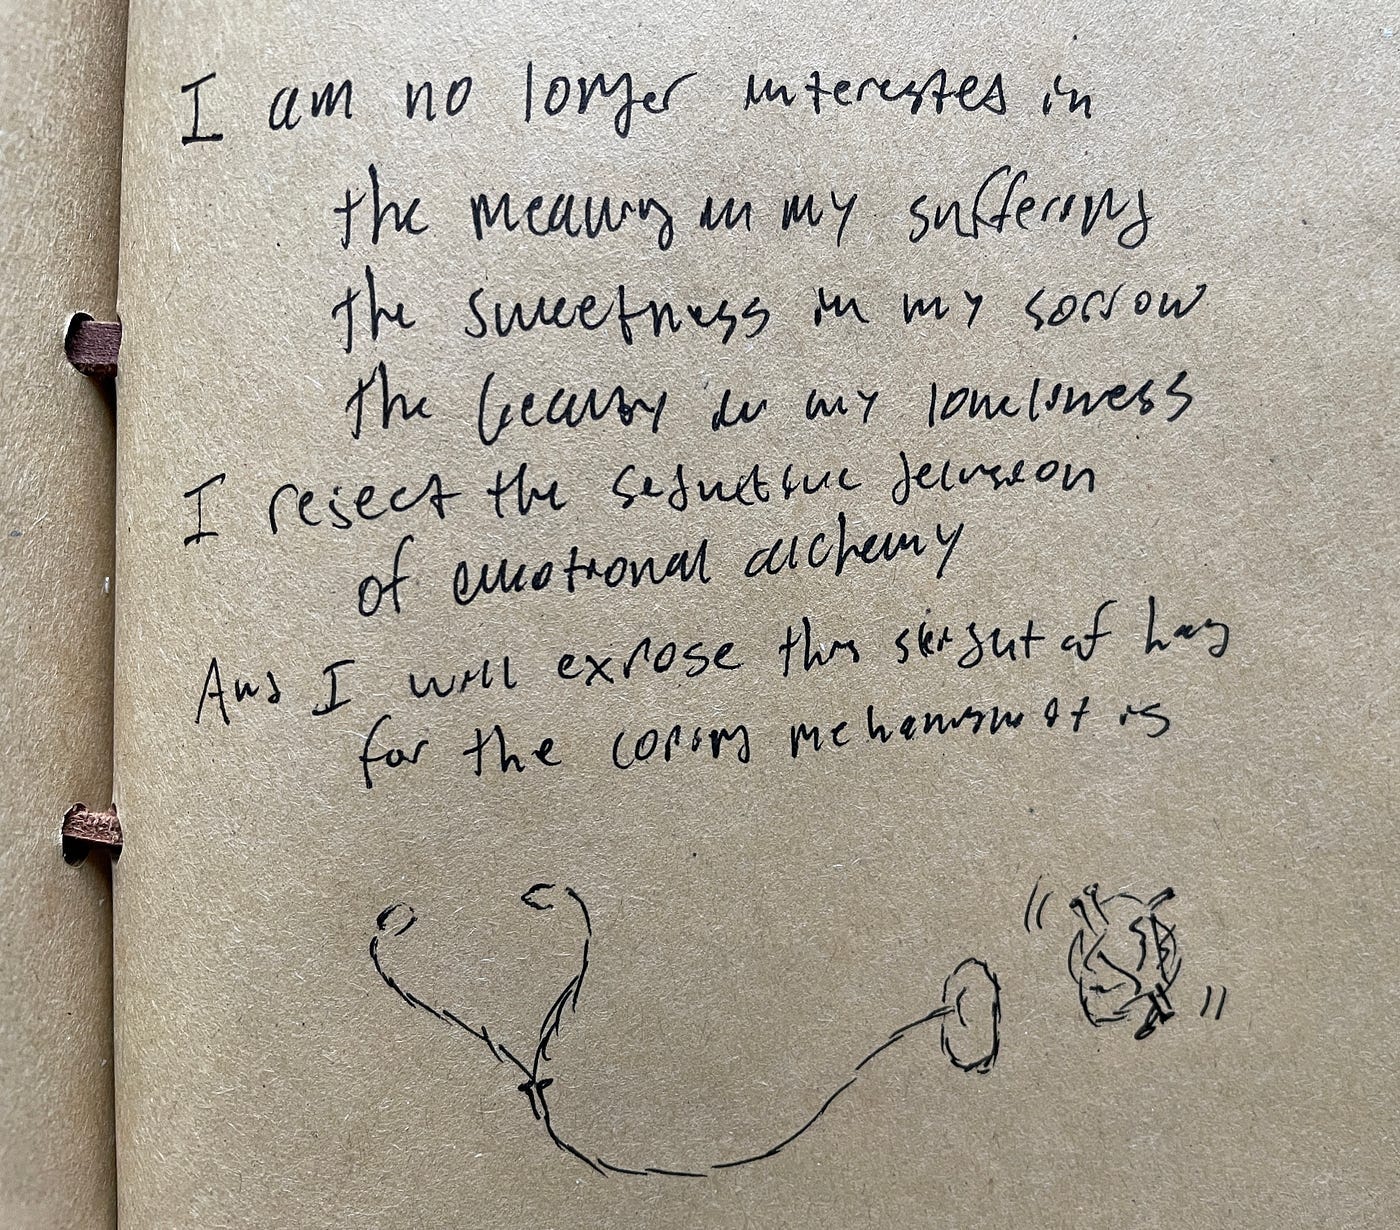 I am no longer interested in
the meaning in my suffering
the sweetness in my sorrow
the beauty in my loneliness
I reject the seductive delusion
of emotional alchemy
And I will expose this sleight of hand
for the coping mechanism it is